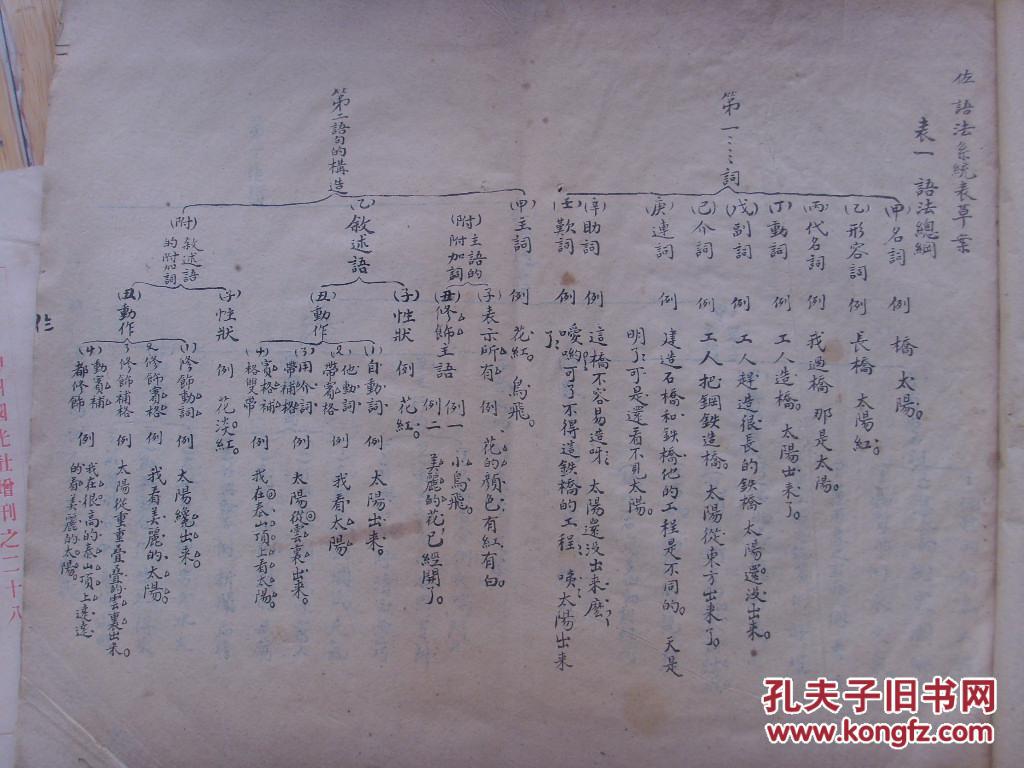 佐 語法系統表草案
表一 語法總綱
第一……詞
(甲)名詞 例 橋 太陽。
(乙)形容詞 例 長橋 太陽紅。
(丙)代名詞 例 我過橋 那是太陽。
(丁)動詞 例 工人造橋。太陽出来了。
(戊)副詞 例 工人趕造很長的鉄橋 太陽還没出来。
(己)介詞 例 工人把鋼鉄造橋。太陽從東方出来了。
(庚)連詞 例 建造石橋和鉄橋他的工程是不同的。天是
明了可是還看不見太陽。
(辛)助詞 例 這橋不容易造呀 太陽還没出来麽
(壬)歎詞 例 噯喲可了不得造鉄橋的工程 咦太陽出来
了
第二語句的構造
(甲)主詞 例 花紅。鳥飛。
(附)主語的附加詞
(子)表示所有 例 花的顔色有紅有白。
(丑)修飾主語 例一 小鳥飛。
例二 美麗的花已經開了。
(乙)敘述語
(子)性狀 例 花紅。
(丑)動作
(1)自動詞 例 太陽出来。
(2)他動詞帶賓格 例 我看太陽
(3)用介詞帶補格 例 太陽從雲裏出来。
(4)賓格補格雙帶 例 我在泰山頂上看太陽。
(附)敘述語的附加詞
(子)性狀 例 花淡紅。
(丑)動作
(1)修飾動詞 例 太陽纔出来。
(2)修飾賓格 例 我看美麗的太陽。
(3)修飾補格 例 太陽從重重疊疊的雲裏出来。
(4)動賓補都修飾 例 我在很高的泰山頂上遠遠
的看美麗的太陽。
社增刊之二十八
孔夫子旧书网
www.kongfz.com